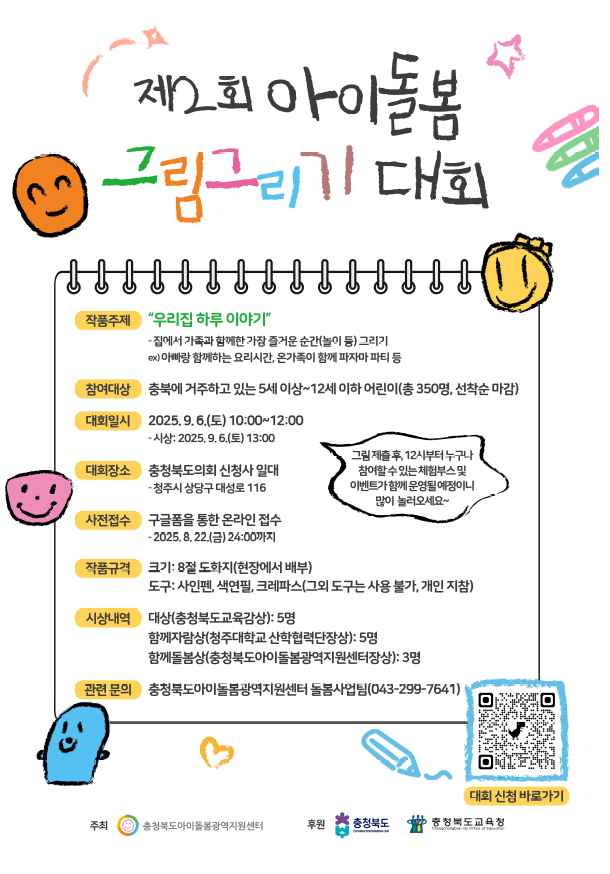 제2회 아이돌봄
그림그리기 대회
작품주제 “우리집 하루 이야기”
- 집에서 가족과 함께한 가장 즐거운 순간(놀이 등) 그리기
ex) 아빠랑 함께하는 요리시간, 온가족이 함께 파자마 파티 등
참여대상 충북에 거주하고 있는 5세 이상~12세 이하 어린이(총 350명, 선착순 마감)
대회일시 2025. 9. 6.(토) 10:00~12:00
- 시상: 2025. 9. 6.(토) 13:00
그림 제출 후, 12시부터 누구나
참여할 수 있는 체험부스 및
이벤트가 함께 운영될 예정이니
많이 놀러오세요~
대회장소 충청북도의회 신청사 일대
- 청주시 상당구 대성로 116
사전접수 구글폼을 통한 온라인 접수
- 2025. 8. 22.(금) 24:00까지
작품규격 크기: 8절 도화지(현장에서 배부)
도구: 사인펜, 색연필, 크레파스(그외 도구는 사용 불가, 개인 지참)
시상내역 대상(충청북도교육감상): 5명
함께자람상(청주대학교 산학협력단장상): 5명
함께돌봄상(충청북도아이돌봄광역지원센터장상): 3명
관련 문의 충청북도아이돌봄광역지원센터 돌봄사업팀(043-299-7641)
대회 신청 바로가기
주최 충청북도아이돌봄광역지원센터 후원 충청북도 충청북도교육청
CHUNGCHEONGBUK-DO Chungcheongbuk-do Office of Education